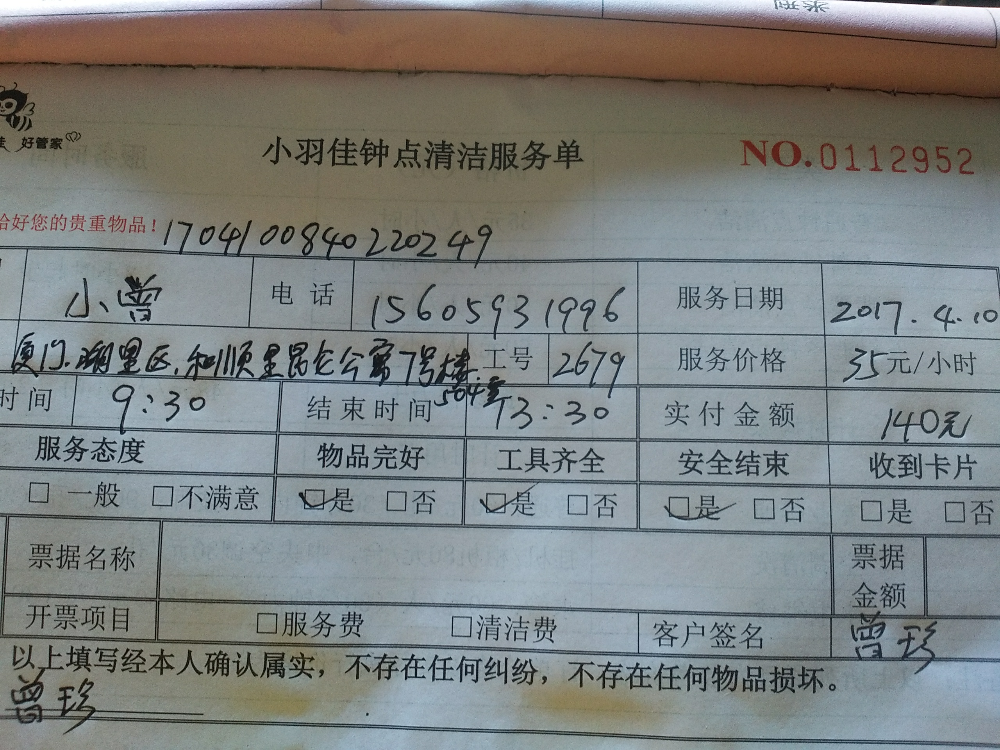 类型
好管家
小羽佳钟点清洁服务单 NO.0112952
给好您的贵重物品! 1704100840220249
小曾 电话 15605931996 服务日期 2017.4.10
厦门.湖里区.和顺里昆仑公寓7号楼504室 工号 2679 服务价格 35元/小时
时间 9:30 结束时间 13:30 实付金额 140元
服务态度 物品完好 工具齐全 安全结束 收到卡片
□ 一般 □不满意 ☑是 □否 ☑是 □否 ☑是 □否 □是 □否
票据名称 票据金额
开票项目 □服务费 □清洁费 客户签名 曾珍
以上填写经本人确认属实,不存在任何纠纷,不存在任何物品损坏。
曾珍